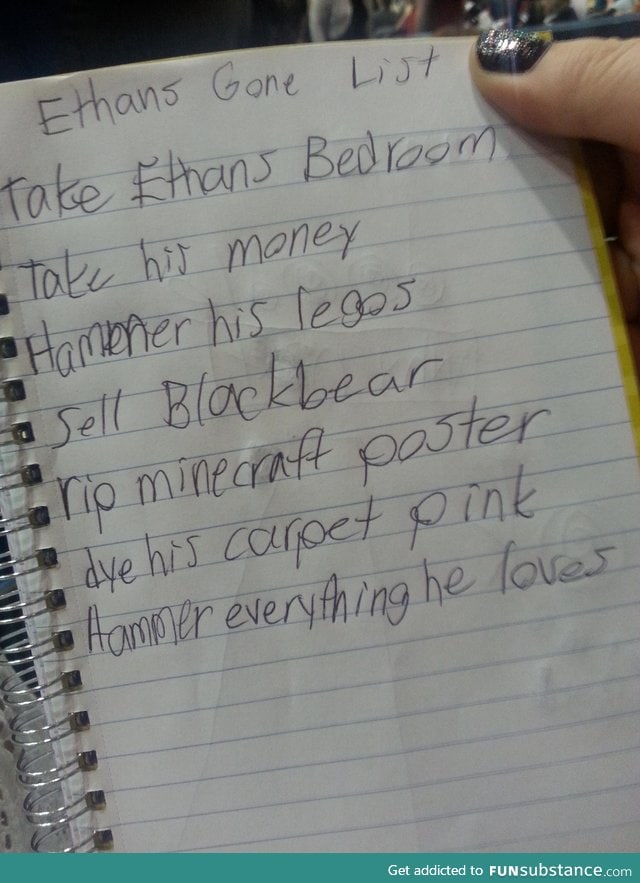 Ethans Gone List
Take Ethans Bedroom
Take his money
Hammer his legos
Sell Blackbear
rip minecraft poster
dye his carpet pink
Hammer everything he loves
Get addicted to FUNsubstance.com